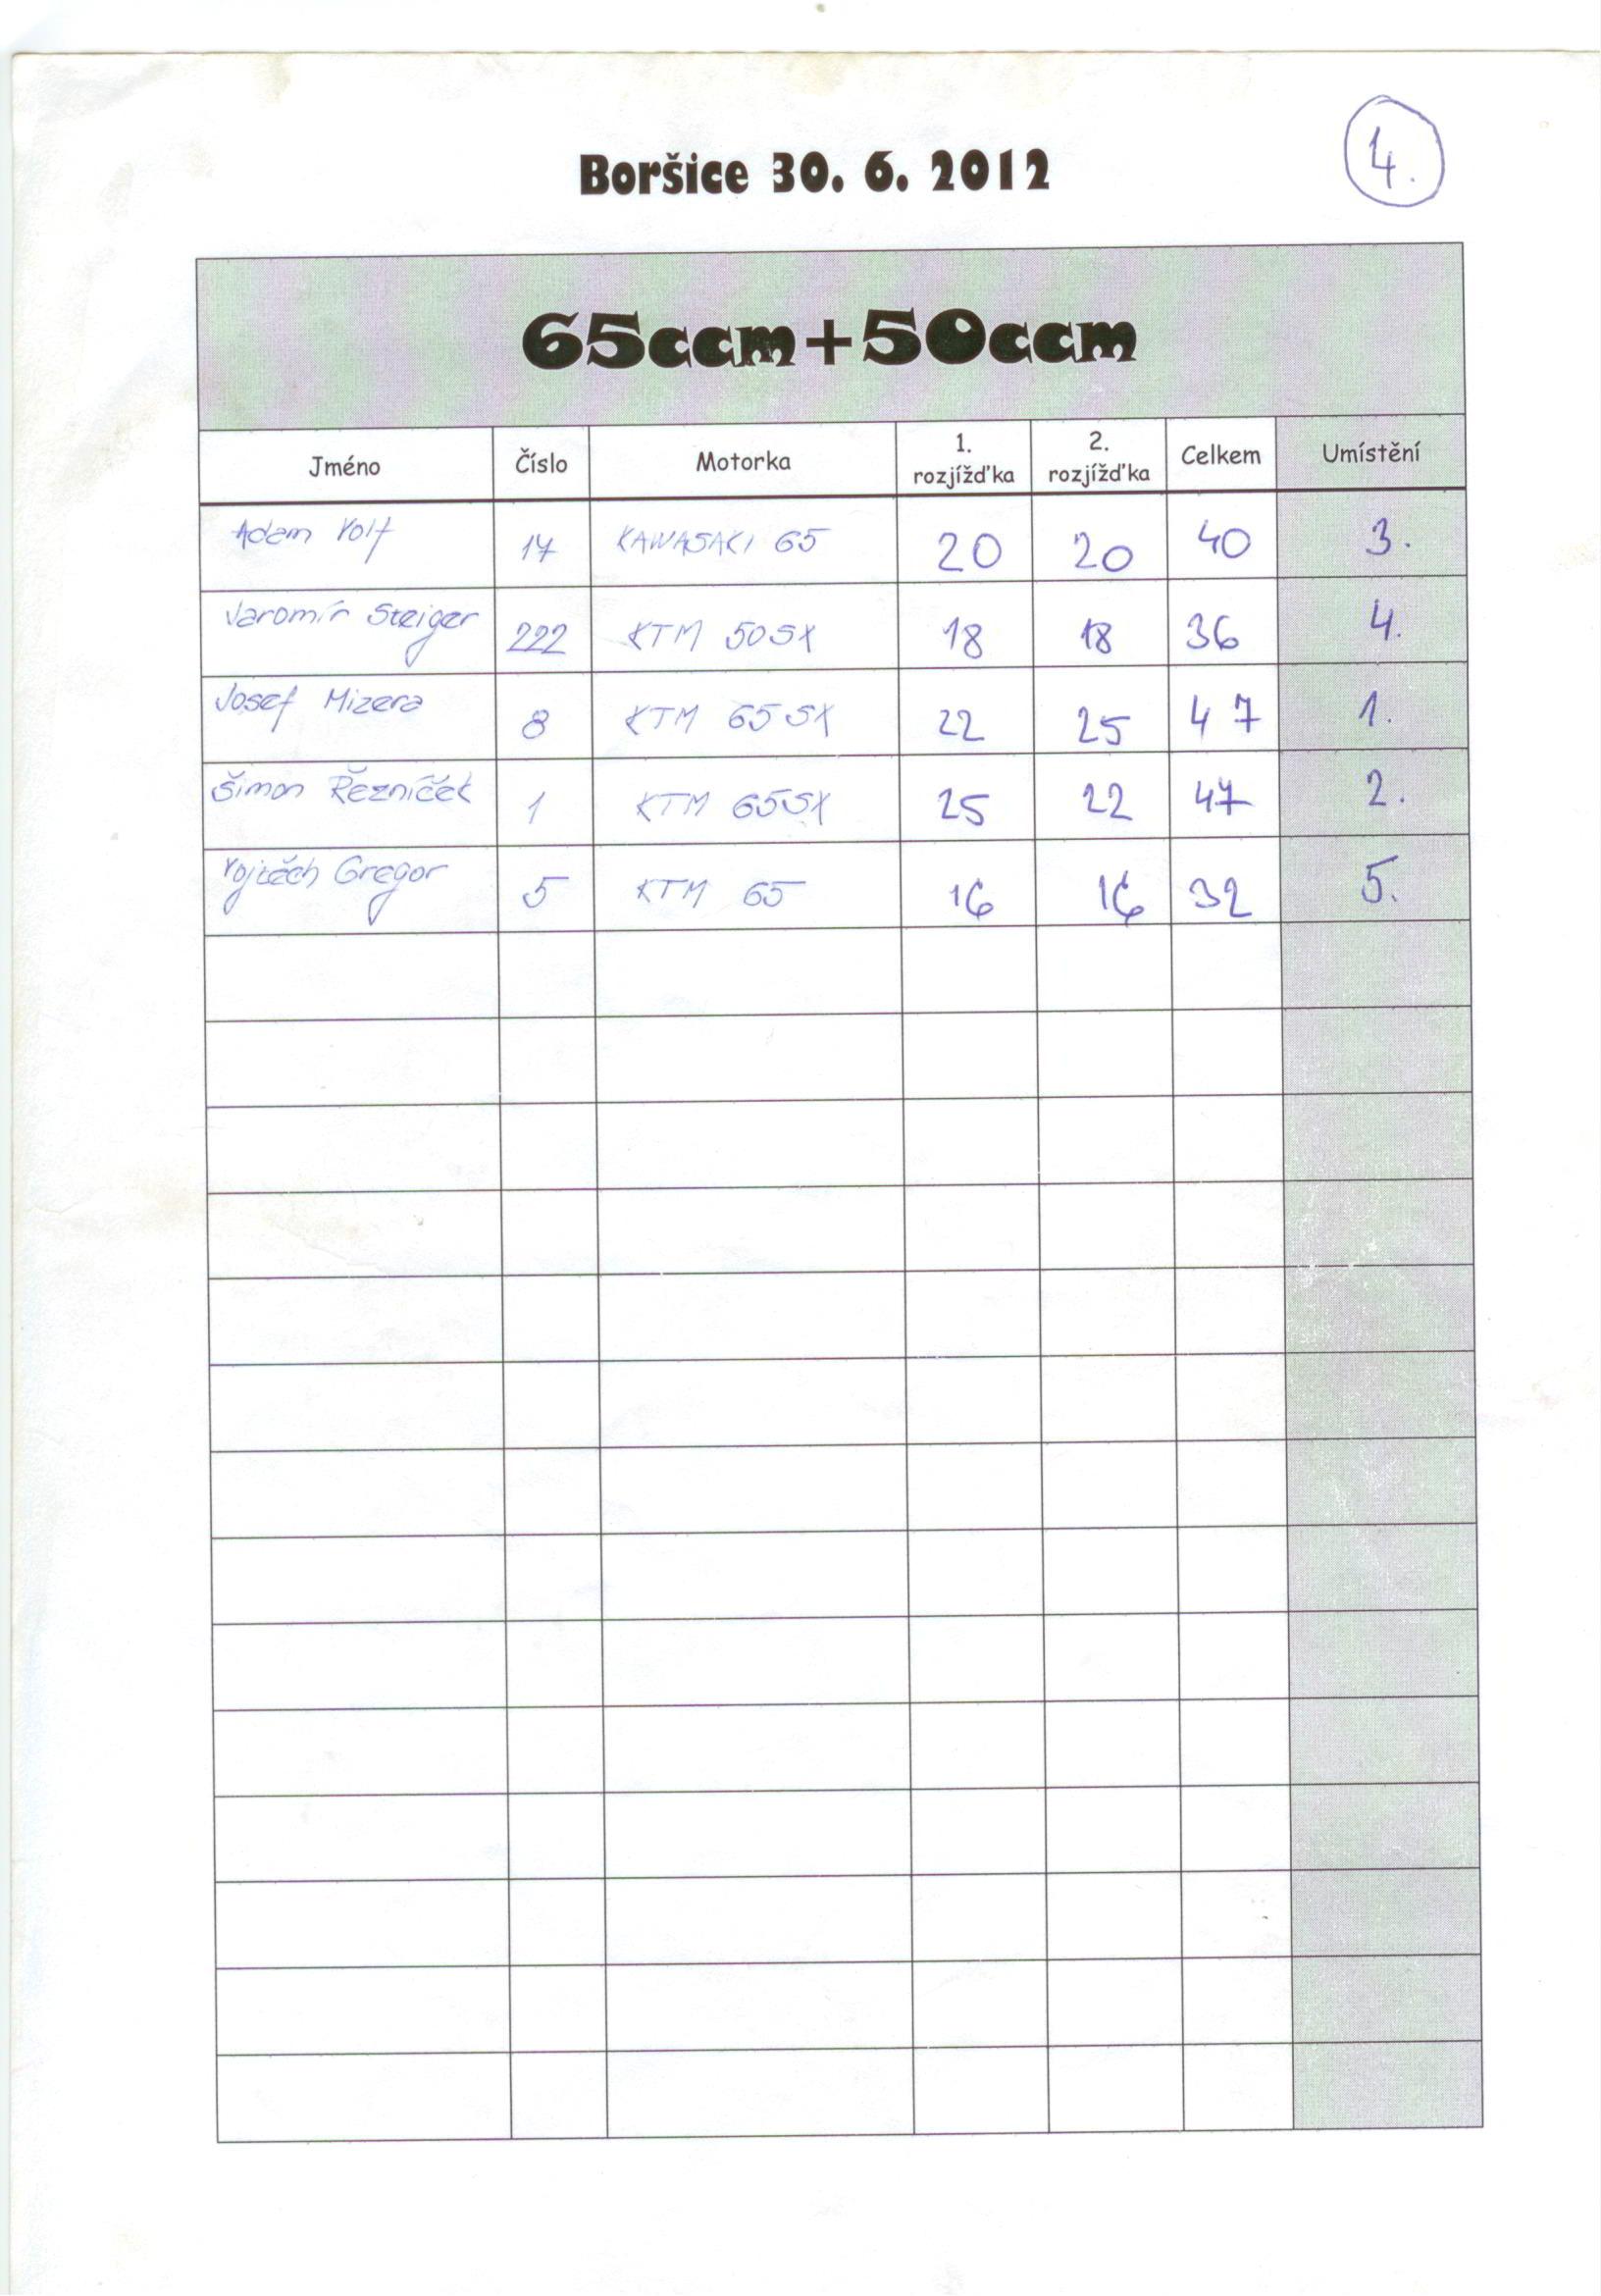 4.
Boršice 30. 6. 2012
65ccm+50ccm
Jméno Číslo Motorka 1. rozjížďka 2. rozjížďka Celkem Umístění
Adam Volf 17 KAWASAKI 65 20 20 40 3.
Jaromír Steiger 222 KTM 50SX 18 18 36 4.
Josef Mizera 8 KTM 65SX 22 25 47 1.
Šimon Řezníček 1 KTM 65SX 25 22 47 2.
Vojtěch Gregor 5 KTM 65 16 16 32 5.